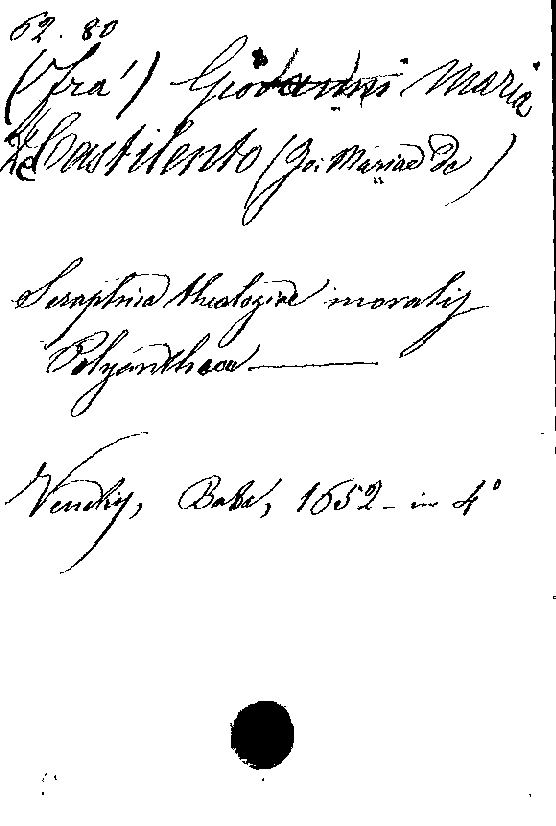 62.80
(Fra') Giovanni Maria
de Castilento (Jo: Mariae De)
Seraphica theologiae moralis
Polyanthaea
Venetiis, Baba, 1652 - in 4°